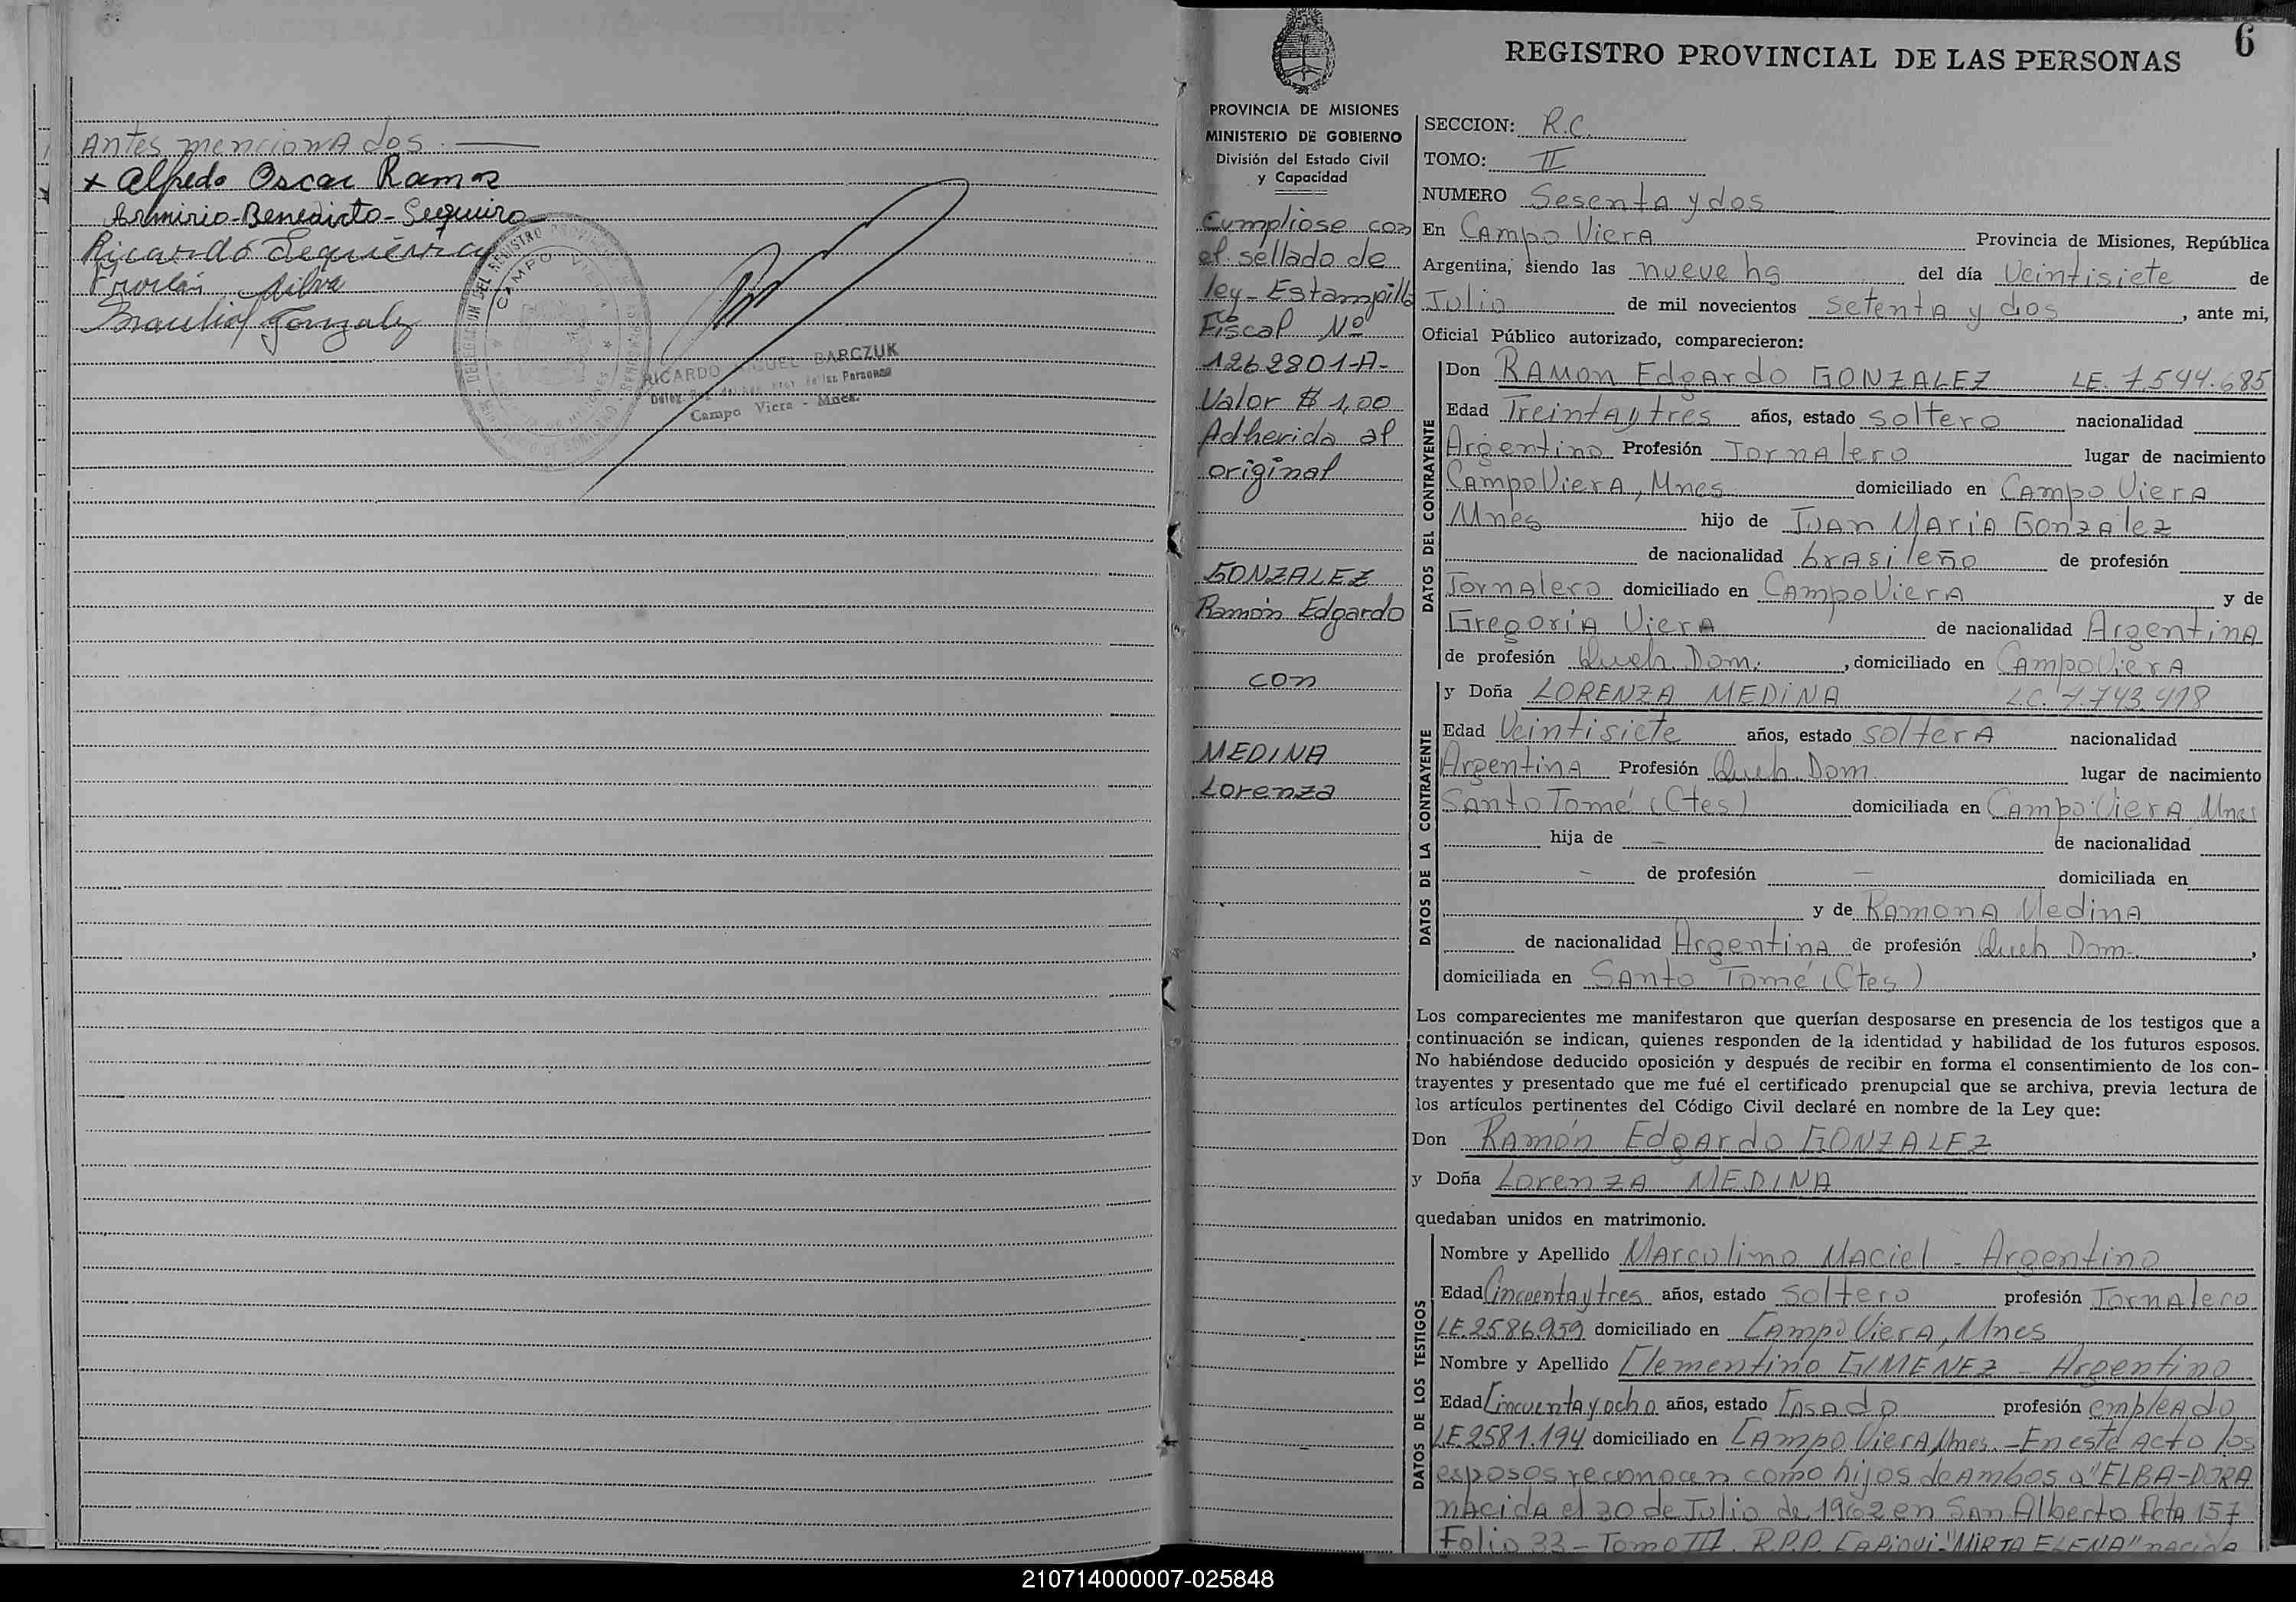 Antes mencionados.
x Alfredo Oscar Ramos
Armirio-Benedicto-Sequeiro
Ricardo Sequeira
Silva
Gonzalez
DELEGACION DEL REGISTRO PROVINCIAL
CAMPO VIERA
RICARDO MIGUEL BARCZUK
Campo Viera - Mnes.
6
REGISTRO PROVINCIAL DE LAS PERSONAS
PROVINCIA DE MISIONES
MINISTERIO DE GOBIERNO
División del Estado Civil
y Capacidad
Cumpliose con
el sellado de
ley - Estampilla
Fiscal Nº
1262801-A-
Valor $ 1,00
Adherida al
original
GONZALEZ
Ramón Edgardo
con
MEDINA
Lorenza
SECCION: R.C.
TOMO: II
NUMERO Sesenta y dos
En Campo Viera Provincia de Misiones, República
Argentina, siendo las nueve hs del día Veintisiete de
Julio de mil novecientos setenta y dos, ante mi,
Oficial Público autorizado, comparecieron:
DATOS DEL CONTRAYENTE
Don RAMON Edgardo GONZALEZ LE. 7.544.685
Edad Treinta y tres años, estado soltero nacionalidad
Argentino Profesión Jornalero lugar de nacimiento
Campo Viera, Mnes domiciliado en Campo Viera
Mnes hijo de Juan Maria Gonzalez
de nacionalidad brasileño de profesión
Jornalero domiciliado en Campo Viera y de
Gregoria Viera de nacionalidad Argentina
de profesión Queh. Dom., domiciliado en Campo Viera
DATOS DE LA CONTRAYENTE
y Doña LORENZA MEDINA L.C. 7.743.418
Edad Veintisiete años, estado soltera nacionalidad
Argentina Profesión Queh Dom lugar de nacimiento
Santo Tomé (Ctes) domiciliada en Campo Viera Mnes
hija de — de nacionalidad
— de profesión — domiciliada en
y de Ramona Medina
de nacionalidad Argentina de profesión Queh Dom.,
domiciliada en Santo Tomé (Ctes)
Los comparecientes me manifestaron que querían desposarse en presencia de los testigos que a
continuación se indican, quienes responden de la identidad y habilidad de los futuros esposos.
No habiéndose deducido oposición y después de recibir en forma el consentimiento de los con-
trayentes y presentado que me fué el certificado prenupcial que se archiva, previa lectura de
los artículos pertinentes del Código Civil declaré en nombre de la Ley que:
Don Ramón Edgardo GONZALEZ
y Doña Lorenza MEDINA
quedaban unidos en matrimonio.
DATOS DE LOS TESTIGOS
Nombre y Apellido Marculino Maciel - Argentino
Edad Cincuenta y tres años, estado soltero profesión Jornalero
LE.2586.959 domiciliado en Campo Viera, Mnes
Nombre y Apellido Clementino GIMENEZ - Argentino
Edad Cincuenta y ocho años, estado Casado profesión empleado
LE.2581.194 domiciliado en Campo Viera Mnes. - En este acto los
esposos reconocen como hijos de ambos a "ELBA-DORA
nacida el 30 de Julio de 1962 en San Alberto Acta 157
Folio 33 - Tomo III. R.P.P. Capiovi "MIRTA ELENA" nacida
210714000007-025848